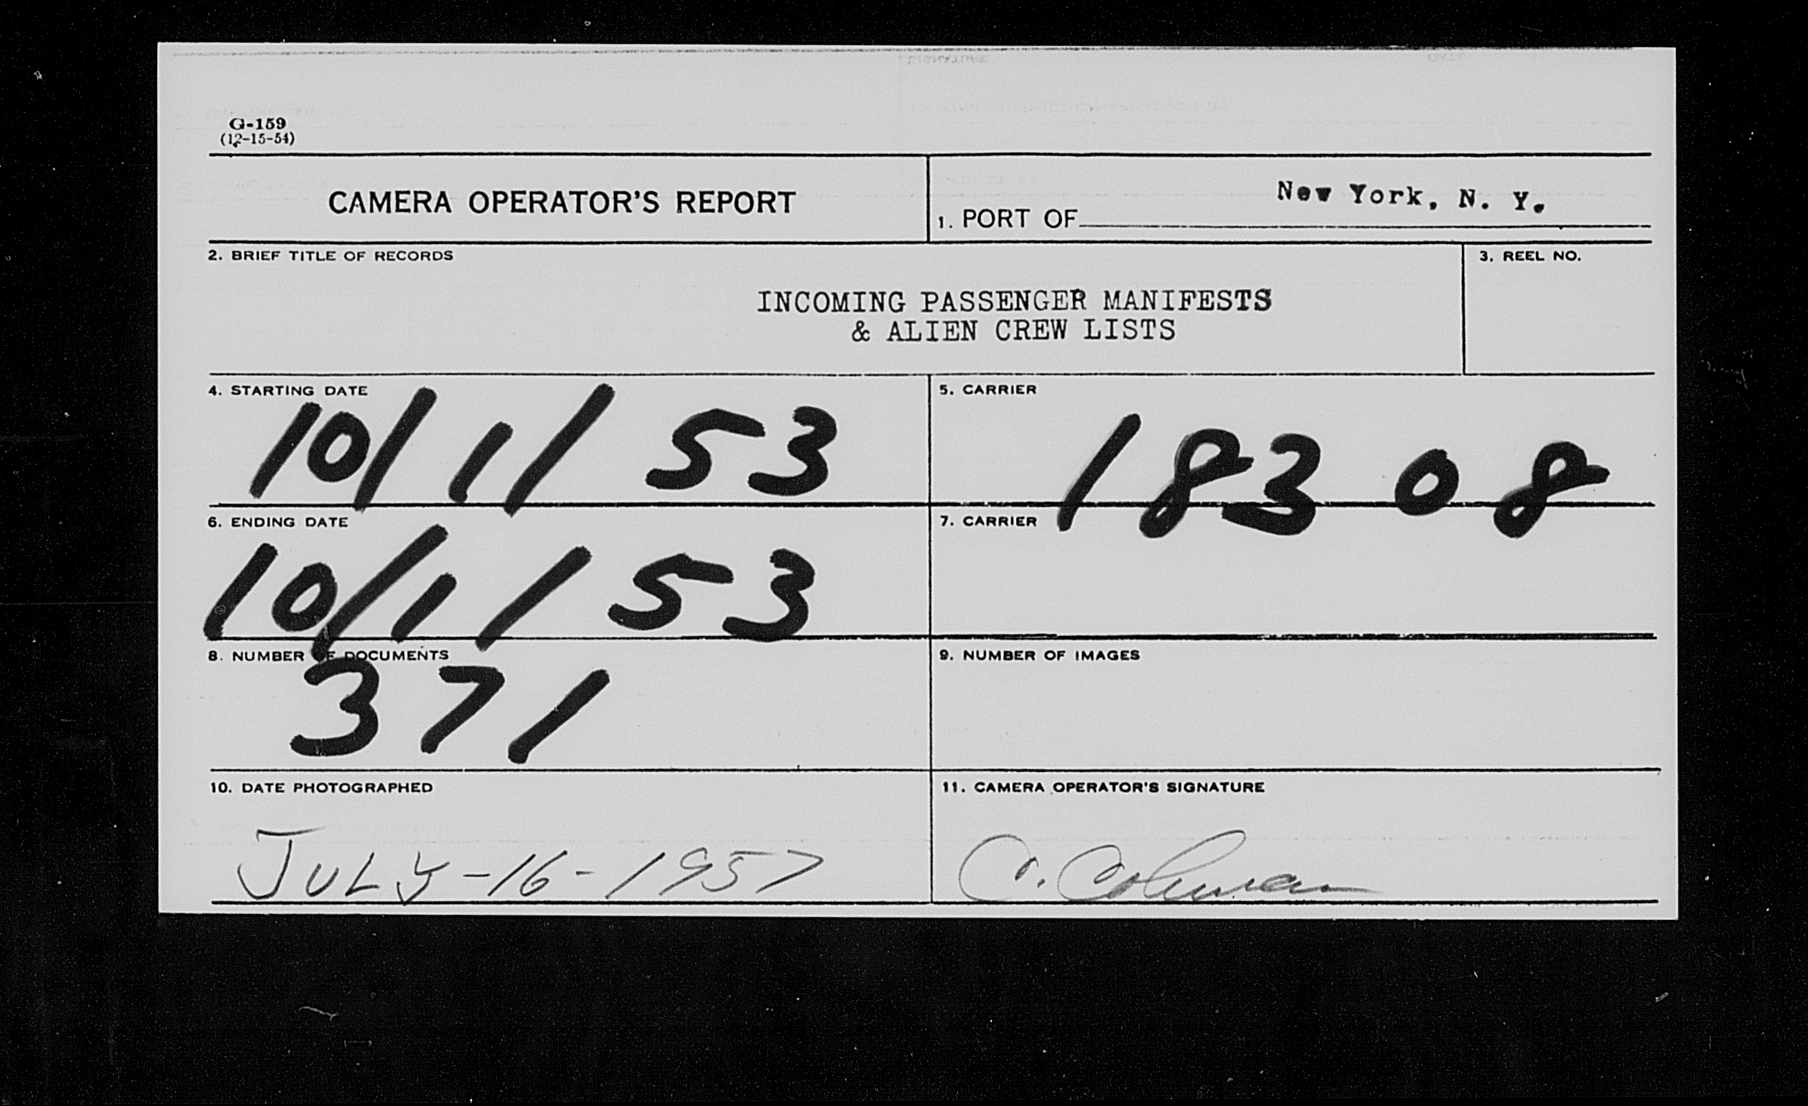 G-159
(12-15-54)
CAMERA OPERATOR'S REPORT
1. PORT OF New York, N. Y.
2. BRIEF TITLE OF RECORDS
INCOMING PASSENGER MANIFESTS
& ALIEN CREW LISTS
3. REEL NO.
4. STARTING DATE
10/1/53
5. CARRIER
18308
6. ENDING DATE
10/1/53
7. CARRIER
8. NUMBER OF DOCUMENTS
371
9. NUMBER OF IMAGES
10. DATE PHOTOGRAPHED
JULY-16-1957
11. CAMERA OPERATOR'S SIGNATURE
C. Coleman